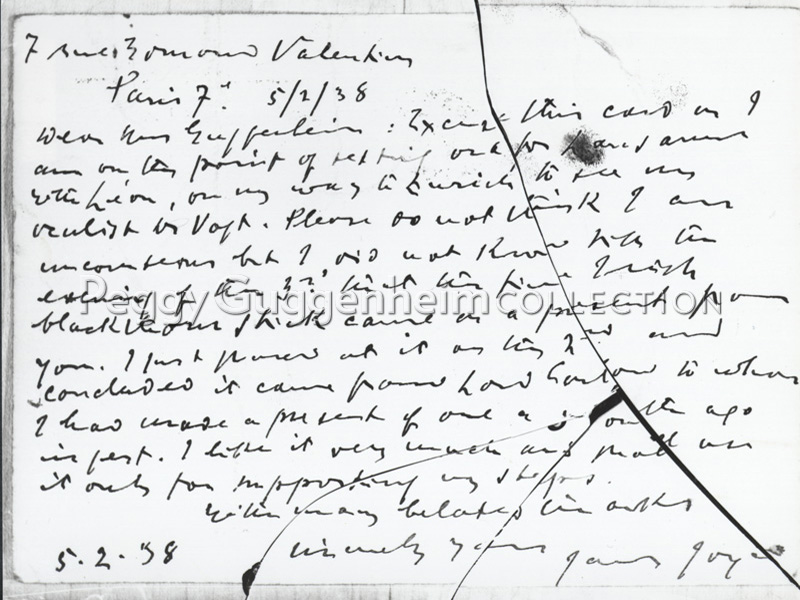 7 rue Edmond Valentin
Paris 7e. 5/2/38
Dear Mrs Guggenheim: Excuse this card as I
am on the point of setting out for Lausanne
with Léon, on my way to Zurich to see my
oculist Dr Vogt. Please do not think I am
uncourteous but I did not know till the
evening of the 3rd that the fine Irish
blackthorn stick came as a present from
you. I just found it on the 2nd and
concluded it came from Lord to whom
I had made a present of one a month ago
in jest. I like it very much and shall use
it only for supporting my steps.
With many belated thanks
sincerely yours
James Joyce
5.2.38
Peggy Guggenheim COLLECTION